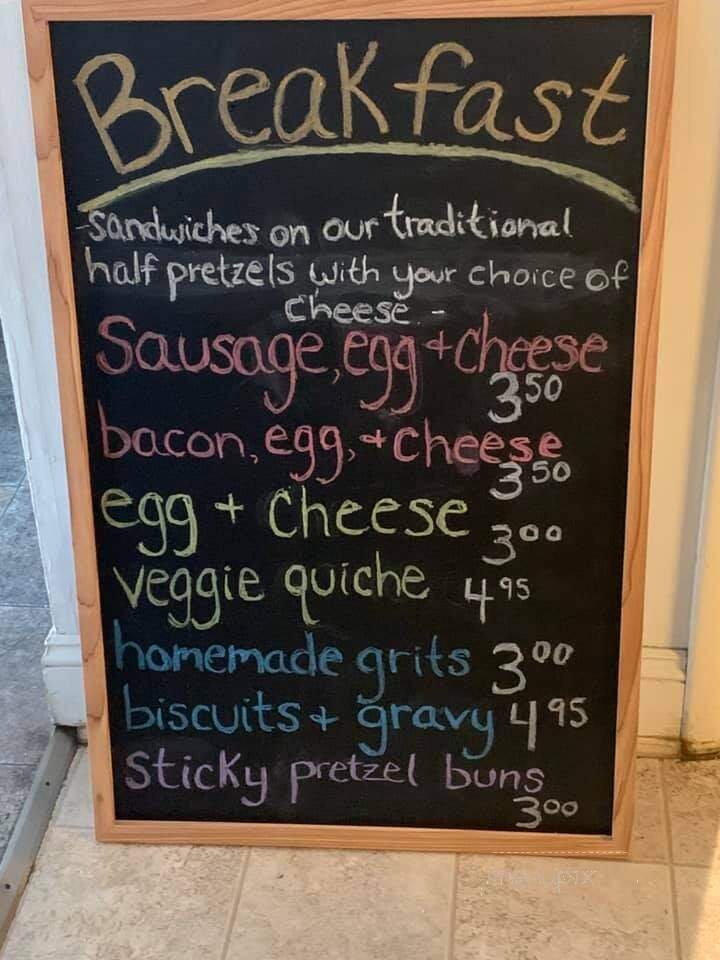 Breakfast
-sandwiches on our traditional
half pretzels with your choice of
cheese -
Sausage, egg + cheese
3.50
bacon, egg, + cheese
3.50
egg + cheese
3.00
veggie quiche 4.95
homemade grits 3.00
biscuits + gravy 4.95
sticky pretzel buns
3.00
menupix